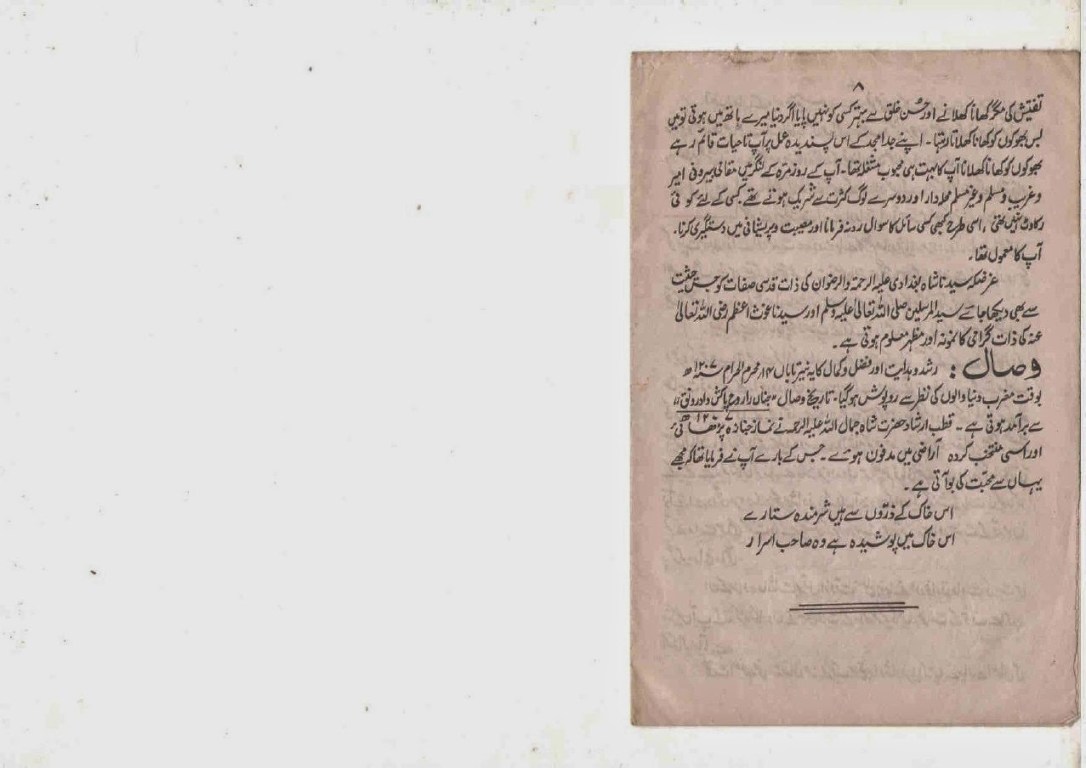 ۸
تفتیش کی مگر کھانا کھلانے اور حُسن خلق سے بہتر کسی کو نہیں پایا اگر دنیا میرے ہاتھ میں ہوتی تو میں
بس بھوکوں کو کھانا کھلاتا رہتا۔ اپنے جدا مجد کے اس پسندیدہ عمل پر آپ تا حیات قائم رہے
بھوکوں کو کھانا کھلانا آپ کا بہت ہی محبوب مشغلہ تھا۔ آپ کے روز مرہ کے لنگر میں مقامی بیرونی امیر
و غریب و مسلم و غیر مسلم محلہ دار اور دوسرے لوگ کثرت سے شریک ہوتے تھے کسی کے لئے کوئی
رکاوٹ نہیں تھی، اسی طرح کبھی کسی سائل کا سوال رد نہ فرمانا اور مصیبت و پریشانی میں دستگیری کرنا۔
آپ کا معمول تھا۔
غرضکہ سیدنا شاہ بغدادی علیہ الرحمۃ والرضوان کی ذات قدسی صفات کو جس حیثیت
سے بھی دیکھا جائے سید المرسلین صلی اللہ تعالیٰ علیہ وسلم اور سیدنا غوث اعظم رضی اللہ تعالیٰ
عنہ کی ذات گرامی کا نمونہ اور مظہر معلوم ہوتی ہے۔
وصال: رشد و ہدایت اور فضل و کمال کا یہ نیر تاباں ۱۴ محرم الحرام ۱۲۰۷ھ
بوقت مغرب دنیا والوں کی نظر سے روپوش ہو گیا۔ تاریخ وصال "جناں را روح پاکش داد رونق"
سے برآمد ہوتی ہے۔ قطب ارشاد حضرت شاہ جمال اللہ علیہ الرحمہ نے نماز جنازہ پڑھائی ۱۲۰۷ھ
اور اسی منتخب کردہ آراضی میں مدفون ہوئے۔ جس کے بارے آپ نے فرمایا تھا کہ مجھے
یہاں سے محبت کی بو آتی ہے۔
اس خاک کے ذرّوں سے ہیں شرمندہ ستارے
اس خاک میں پوشیدہ ہے وہ صاحب اسرار